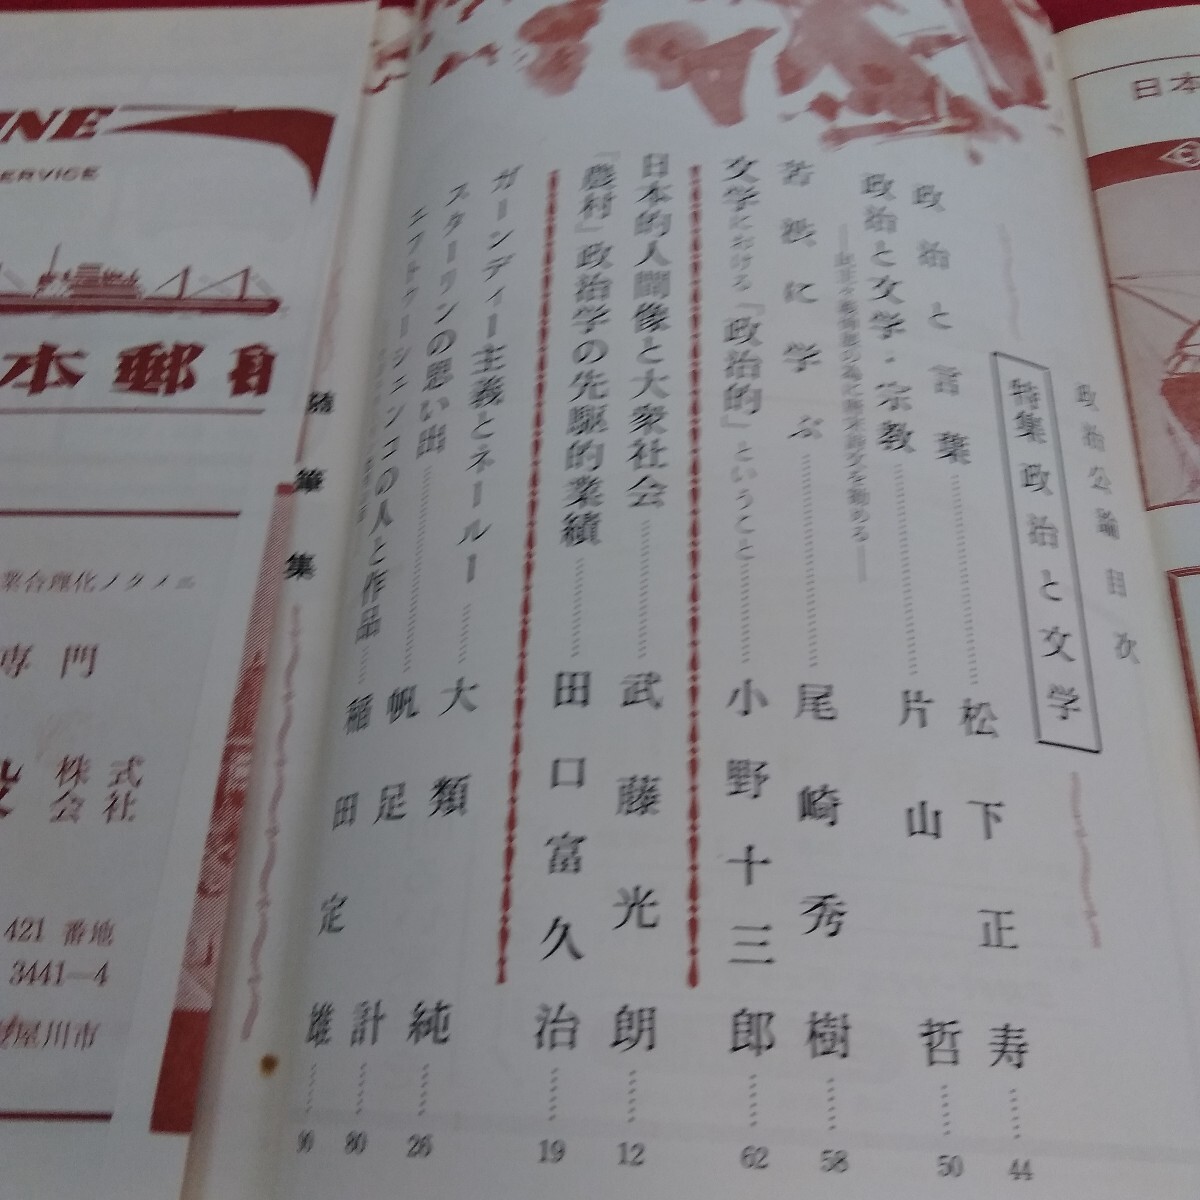 政治公論目次
特集 政治と文学
政治と言葉……松下正寿……44
政治と文学・宗教……片山哲……50
苦渋に学ぶ……尾崎秀樹……58
文学における「政治的」ということ……小野十三郎……62
日本的人間像と大衆社会……武藤光朗……12
「農村」政治学の先駆的業績……田口富久治……19
ガーンディー主義とネールー……大類純……26
スターリンの思い出……帆足計……80
エフトゥーシェンコの人と作品……稲田定雄……90
随筆集
NE
ERVICE
本郵船
業合理化ノタメニ
専門
株式会社
421 番地
3441—4
屋川市
日本